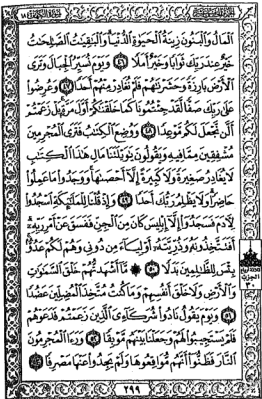 ٱلْمَالُ وَٱلْبَنُونَ زِينَةُ ٱلْحَيَوٰةِ ٱلدُّنْيَا وَٱلْبَٰقِيَٰتُ ٱلصَّٰلِحَٰتُ
خَيْرٌ عِندَ رَبِّكَ ثَوَابًا وَخَيْرٌ أَمَلًا ٤٦ وَيَوْمَ نُسَيِّرُ ٱلْجِبَالَ وَتَرَى
ٱلْأَرْضَ بَارِزَةً وَحَشَرْنَٰهُمْ فَلَمْ نُغَادِرْ مِنْهُمْ أَحَدًا ٤٧ وَعُرِضُوا۟
عَلَىٰ رَبِّكَ صَفًّا لَّقَدْ جِئْتُمُونَا كَمَا خَلَقْنَٰكُمْ أَوَّلَ مَرَّةٍۭ بَلْ زَعَمْتُمْ
أَلَّن نَّجْعَلَ لَكُم مَّوْعِدًا ٤٨ وَوُضِعَ ٱلْكِتَٰبُ فَتَرَى ٱلْمُجْرِمِينَ
مُشْفِقِينَ مِمَّا فِيهِ وَيَقُولُونَ يَٰوَيْلَتَنَا مَالِ هَٰذَا ٱلْكِتَٰبِ
لَا يُغَادِرُ صَغِيرَةً وَلَا كَبِيرَةً إِلَّآ أَحْصَىٰهَا وَوَجَدُوا۟ مَا عَمِلُوا۟
حَاضِرًا وَلَا يَظْلِمُ رَبُّكَ أَحَدًا ٤٩ وَإِذْ قُلْنَا لِلْمَلَٰٓئِكَةِ ٱسْجُدُوا۟
لِءَادَمَ فَسَجَدُوٓا۟ إِلَّآ إِبْلِيسَ كَانَ مِنَ ٱلْجِنِّ فَفَسَقَ عَنْ أَمْرِ رَبِّهِۦٓ
أَفَتَتَّخِذُونَهُۥ وَذُرِّيَّتَهُۥٓ أَوْلِيَآءَ مِن دُونِى وَهُمْ لَكُمْ عَدُوٌّۢ
بِئْسَ لِلظَّٰلِمِينَ بَدَلًا ٥٠ مَّآ أَشْهَدتُّهُمْ خَلْقَ ٱلسَّمَٰوَٰتِ
وَٱلْأَرْضِ وَلَا خَلْقَ أَنفُسِهِمْ وَمَا كُنتُ مُتَّخِذَ ٱلْمُضِلِّينَ عَضُدًا
٥١ وَيَوْمَ يَقُولُ نَادُوا۟ شُرَكَآءِىَ ٱلَّذِينَ زَعَمْتُمْ فَدَعَوْهُمْ
فَلَمْ يَسْتَجِيبُوا۟ لَهُمْ وَجَعَلْنَا بَيْنَهُم مَّوْبِقًا ٥٢ وَرَءَا ٱلْمُجْرِمُونَ
ٱلنَّارَ فَظَنُّوٓا۟ أَنَّهُم مُّوَاقِعُوهَا وَلَمْ يَجِدُوا۟ عَنْهَا مَصْرِفًا ٥٣
الحزب
٣٠
٢٩٩